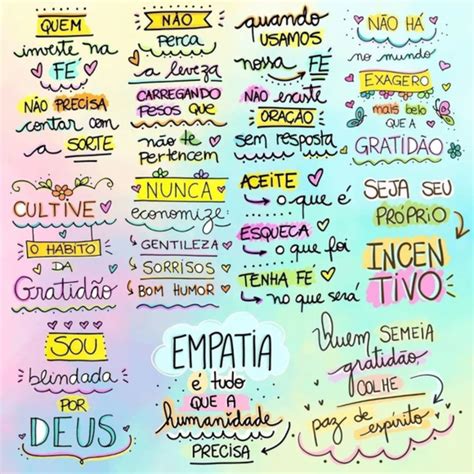 QUEM
investe na
FÉ
NÃO PRECISA
contar com
a SORTE
NÃO
perca
a leveza
CARREGANDO
PESOS QUE
não te
pertencem
quando
USAMOS
nossa FÉ
NÃO existe
ORAÇÃO
sem resposta
NÃO HÁ
no mundo
EXAGERO
mais belo
QUE A
GRATIDÃO
CULTIVE
O HÁBITO
DA
Gratidão
NUNCA
economize:
GENTILEZA
SORRISOS
BOM HUMOR
ACEITE
o que é
ESQUEÇA
o que foi
TENHA FÉ
no que será
SEJA SEU
PRÓPRIO
INCEN
TIVO
SOU
blindada
POR
DEUS
EMPATIA
é tudo
QUE A
humanidade
PRECISA
Quem SEMEIA
gratidão
COLHE
paz de espírito